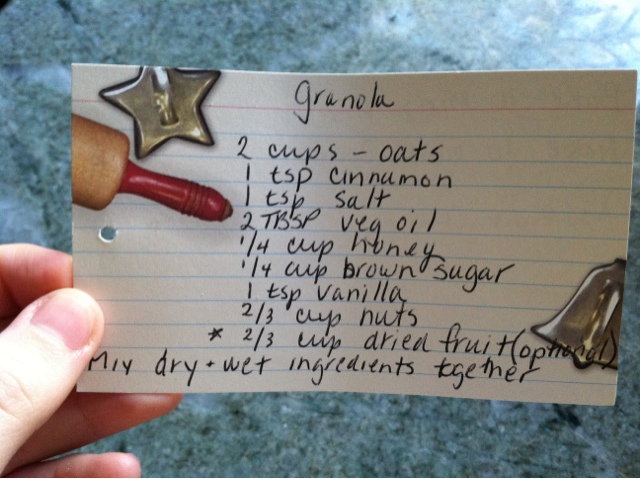 Granola
2 cups - oats
1 tsp cinnamon
1 tsp salt
2 TBSP veg oil
1/4 cup honey
1/4 cup brown sugar
1 tsp vanilla
2/3 cup nuts
* 2/3 cup dried fruit (optional)
Mix dry + wet ingredients together